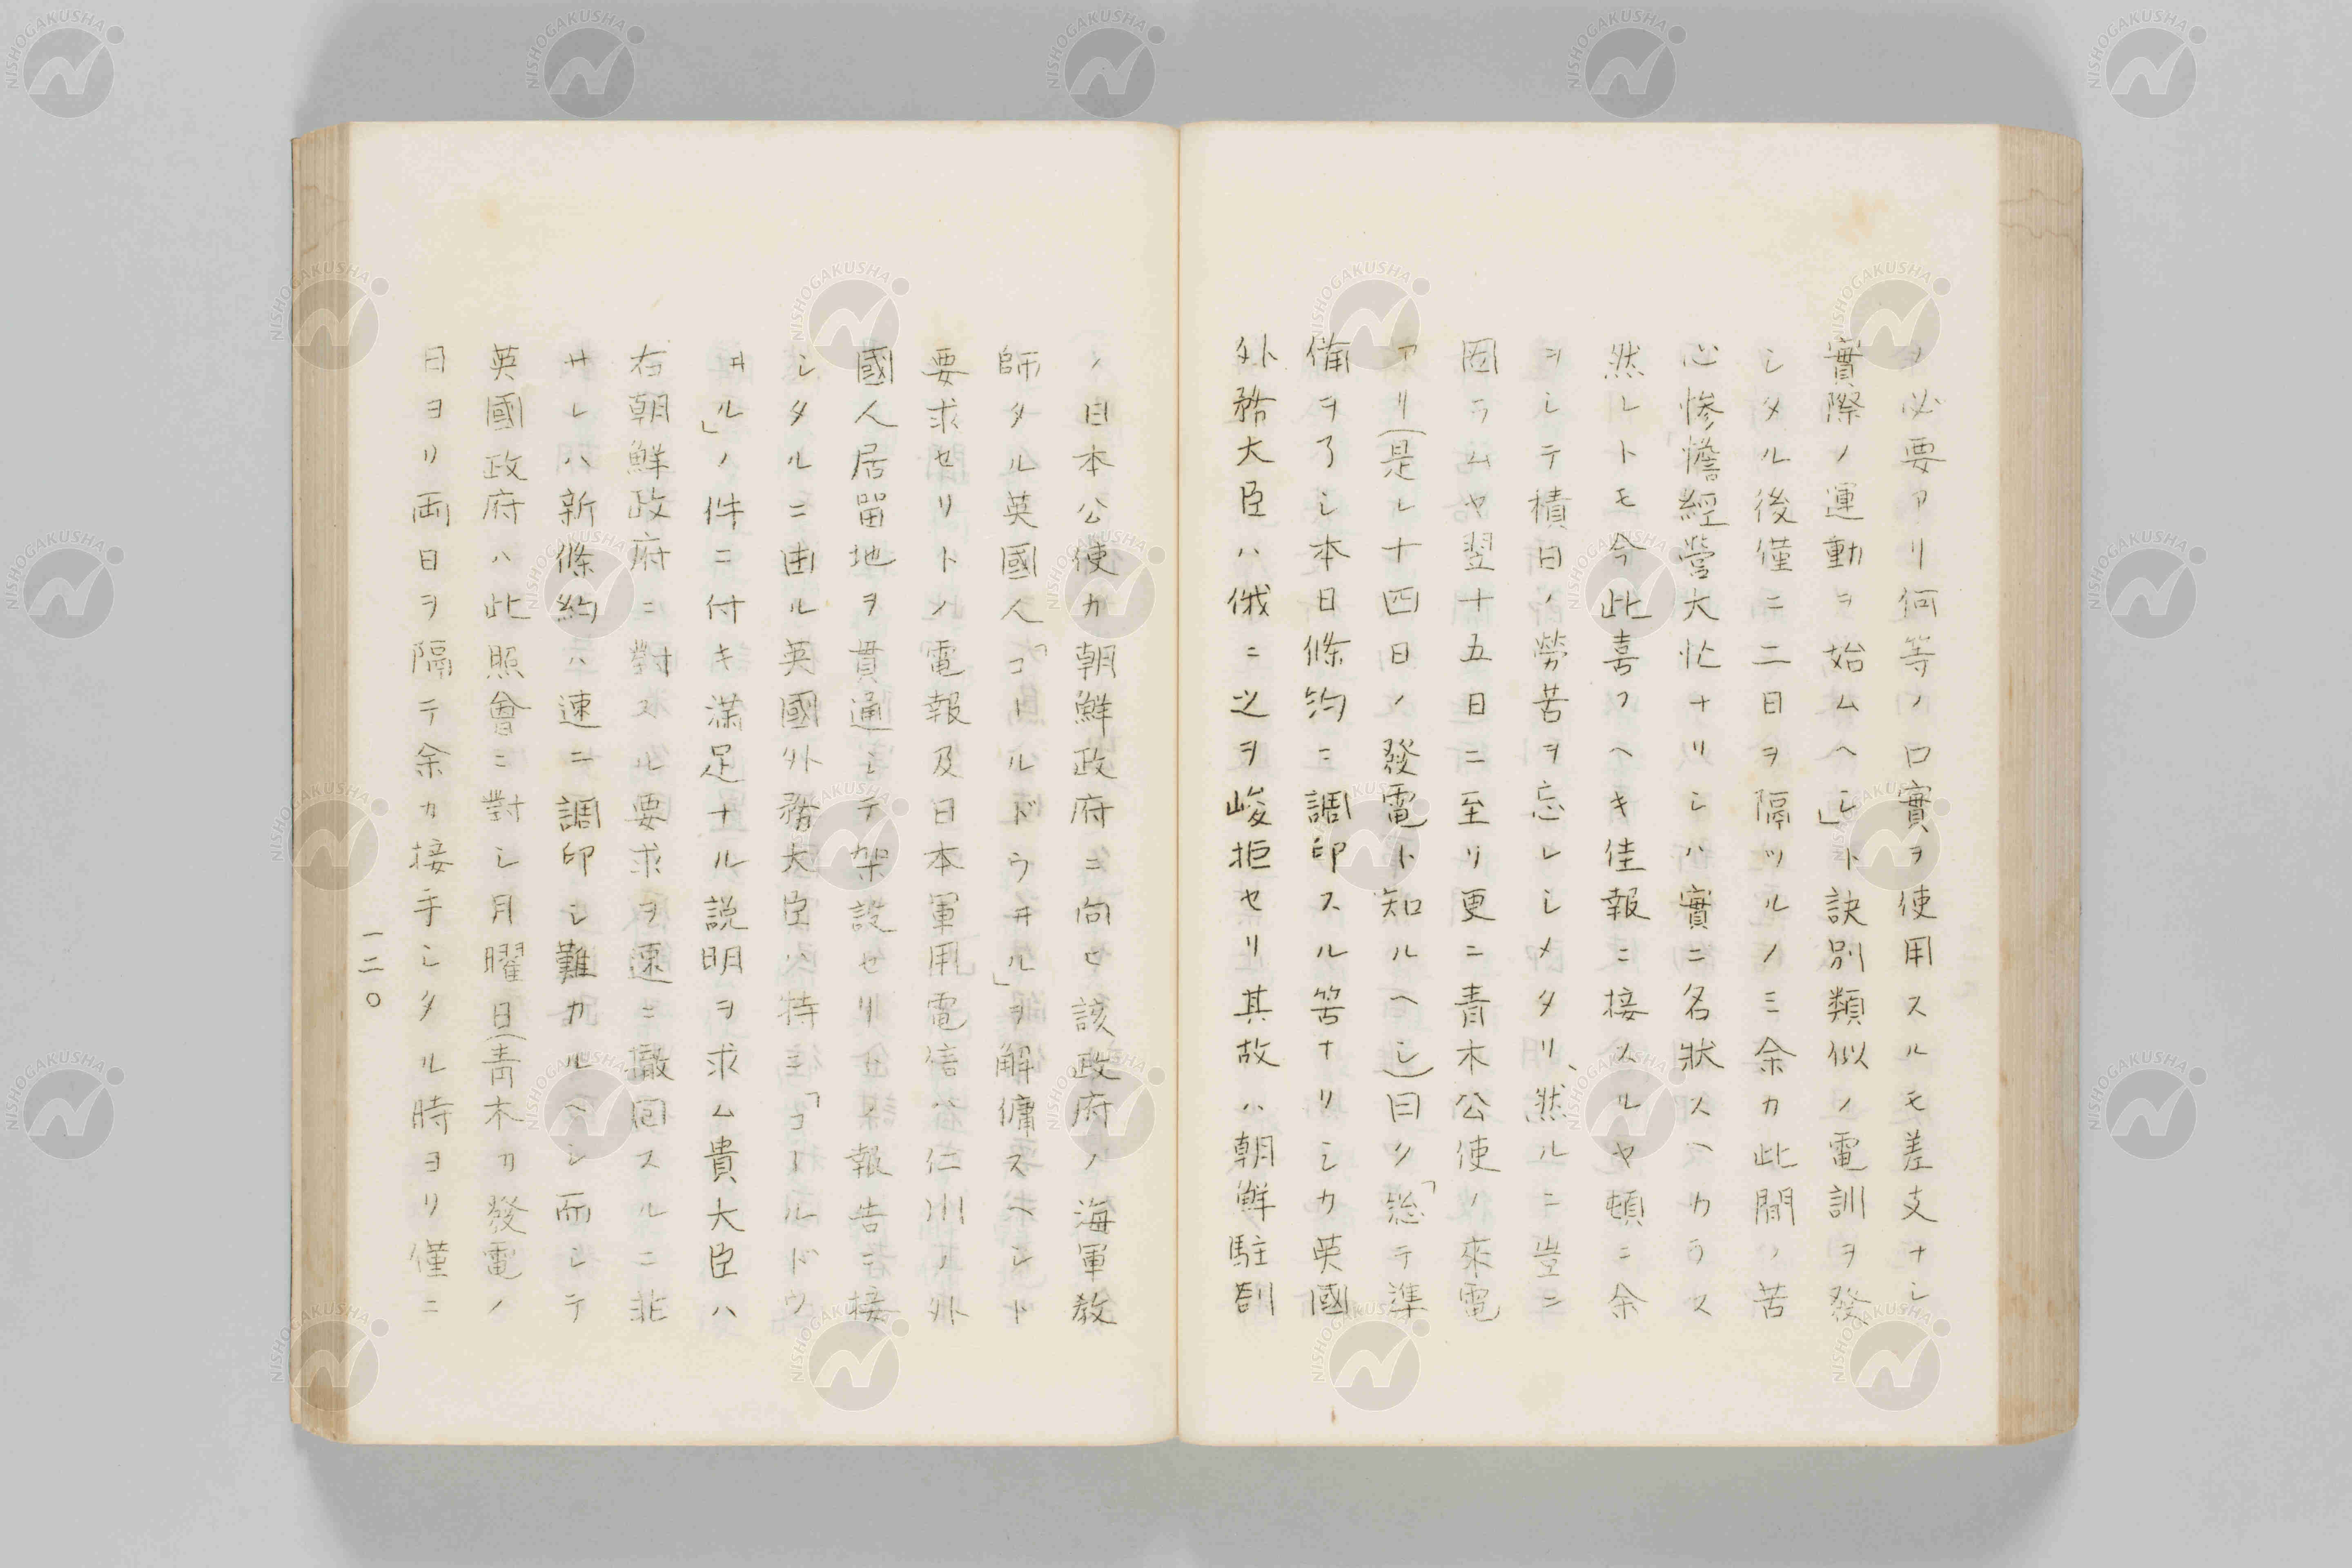 ノ必要アリ何等ノ口實ヲ使用スルモ差支ナシ
實際ノ運動ヲ始ムヘシ」ト訣別類似ノ電訓ヲ發
シタル後僅ニ二日ヲ隔ツルノミ余カ此間ノ苦
心慘憺經營大忙ナリシハ實ニ名狀スヘカラス
然レトモ今此喜フヘキ佳報ニ接スルヤ頓ニ余
ヲシテ積日ノ勞苦ヲ忘レシメタリ、然ルニ豈ニ
図ラムヤ翌十五日ニ至リ更ニ青木公使ノ來電
アリ(是レ十四日ノ發電ト知ルヘシ)曰ク「総テ準
備ヲ了シ本日條約ニ調印スル筈ナリシカ英國
外務大臣ハ俄ニ之ヲ峻拒セリ其故ハ朝鮮駐劄
ノ日本公使カ朝鮮政府ニ向ヒ該政府ノ海軍教
師タル英國人「コールドウヰル」ヲ解傭スヘシト
要求セリトノ電報及日本軍用電信ハ仁川ノ外
國人居畱地ヲ貫通シテ架設セリトノ報告ニ接
シタルニ由ル英國外務大臣ハ特ニ「コールドウ
ヰル」ノ件ニ付キ滿足ナル説明ヲ求ム貴大臣ハ
右朝鮮政府ニ對スル要求ヲ速ニ撤回スルニ非
サレハ新條約ハ速ニ調印シ難カルヘシ而シテ
英國政府ハ此照會ニ對シ月曜日(青木カ發電ノ
日ヨリ両日ヲ隔テ余カ接手シタル時ヨリ僅ニ
一二〇
NISHOGAKUSHA